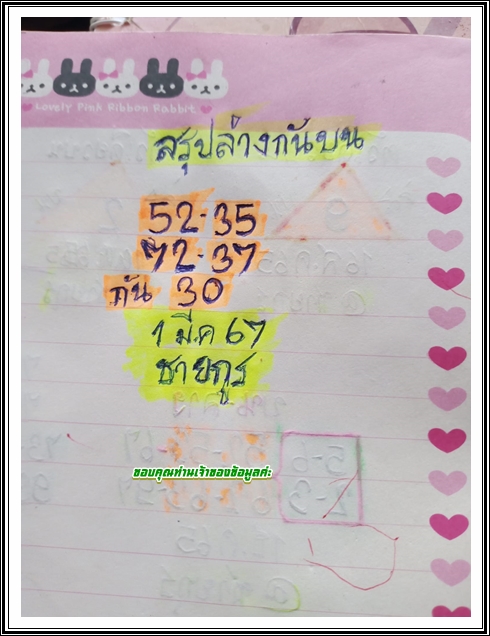 Lovely Pink Ribbon Rabbit
สรุปล่างกันบน
52-35
72-37
กัน 30
1 มีค 67
ชายกูร
ขอบคุณท่านเจ้าของข้อมูลค่ะ